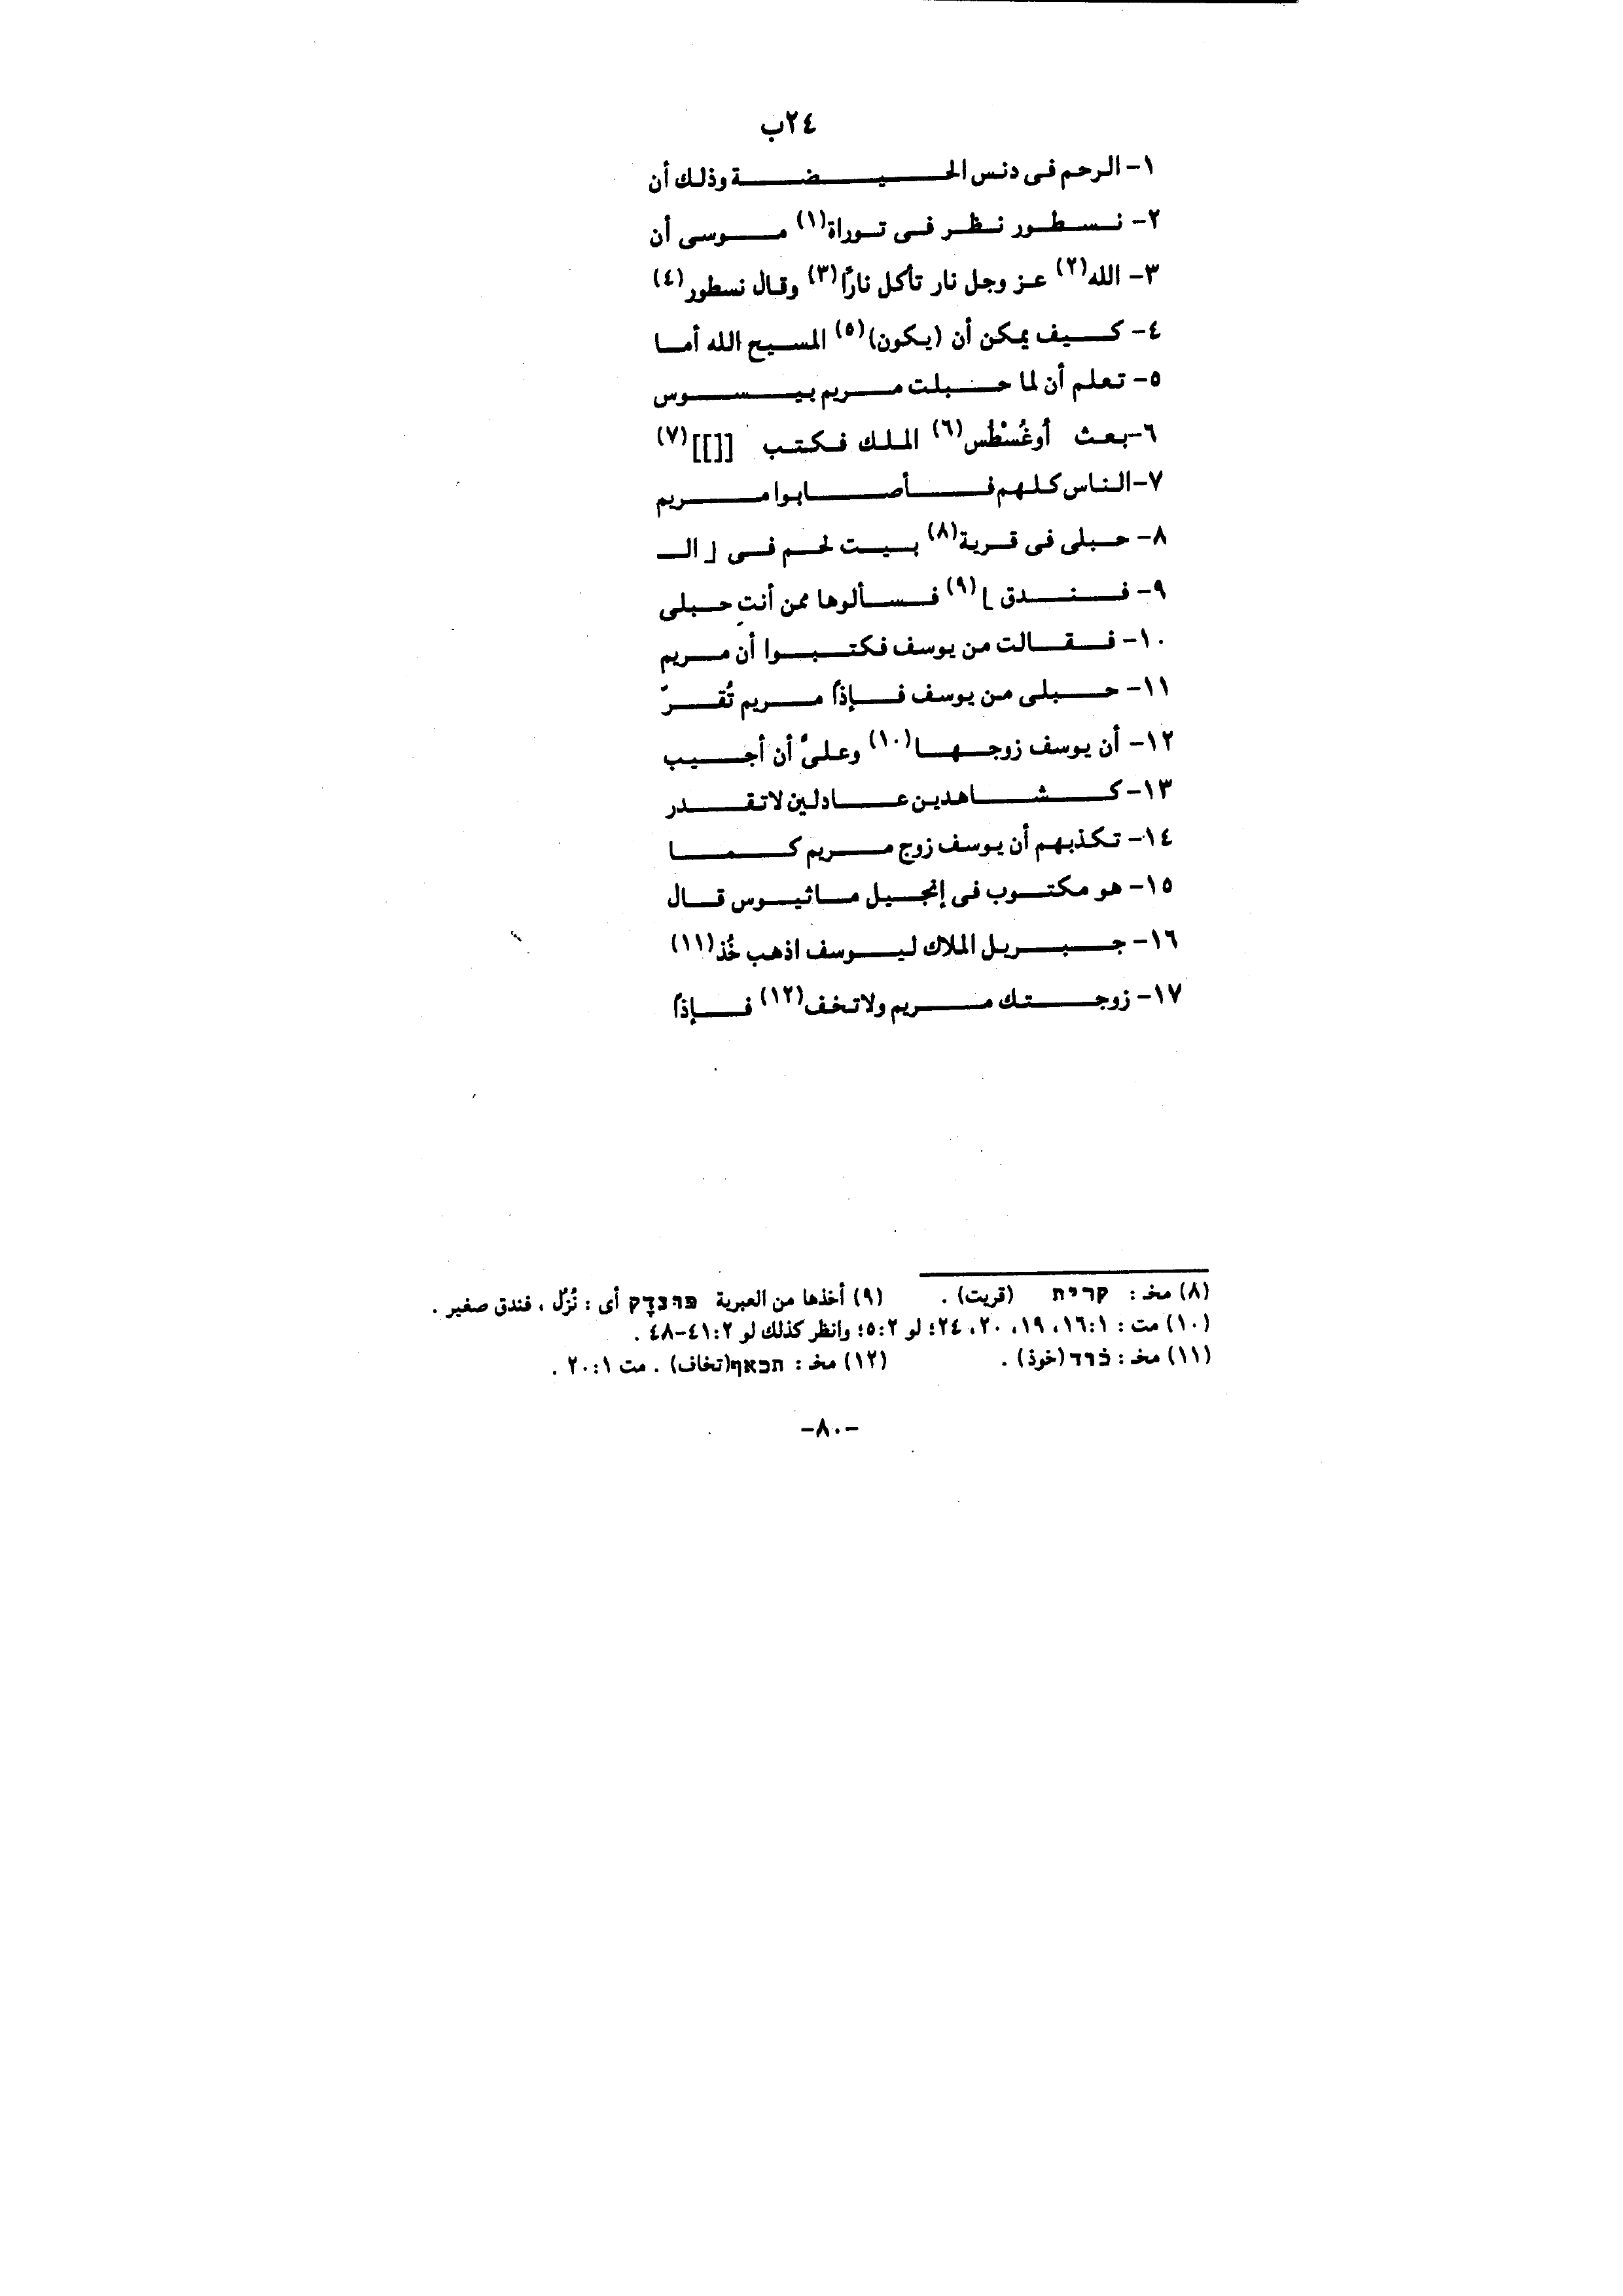 ٢٤ب
١- الرحم فى دنس الحيضة وذلك أن
٢- نسطور نظر فى توراة(١) موسى أن
٣- الله(٢) عز وجل نار تأكل نارًا(٣) وقال نسطور(٤)
٤- كيف يمكن أن (يكون)(٥) المسيح الله أما
٥- تعلم أن لما حبلت مريم بيسوس
٦-بعث أُوغُسْطُس(٦) الملك فكتب [[]](٧)
٧-الناس كلهم فأصابوا مريم
٨- حبلى فى قرية(٨) بيت لحم فى ⌋ الـ
٩- فندق ⌊(٩) فسألوها ممن أنتِ حبلى
١٠- فقالت من يوسف فكتبوا أن مريم
١١- حبلى من يوسف فإذًا مريم تُقرّ
١٢- أن يوسف زوجها(١٠) وعلىّ أن أجيب
١٣- كشاهدين عادلين لاتقدر
١٤- تكذبهم أن يوسف زوج مريم كما
١٥- هو مكتوب فى إنجيل ماثيوس قال
١٦- جبريل الملاك ليوسف اذهب خُذ(١١)
١٧- زوجتك مريم ولاتخف(١٢) فإذًا
(٨) مخـ : קרית (قريت) . (٩) أخذها من العبرية פונדק أى : نُزُل ، فندق صغير .
(١٠) مت : ١٦:١، ١٩، ٢٠، ٢٤؛ لو ٥:٢؛ وانظر كذلك لو ٤١:٢-٤٨ .
(١١) مخـ : כוד (خوذ) . (١٢) مخـ : תכאף(تخاف) . مت ٢٠:١ .
-٨٠-